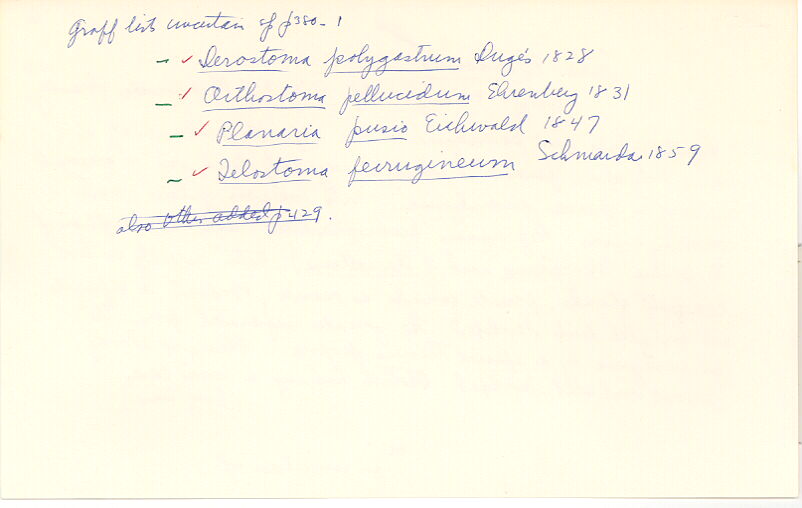 Graff lists uncertain sp p380-1
– ✓ Derostoma polygastrum Dugés 1828
– ✓ Orthostoma pellucidum Ehrenberg 1831
– ✓ Planaria pusio Eichwald 1847
– ✓ Telostoma ferrugineum Schmarda 1859
also other added p 429.